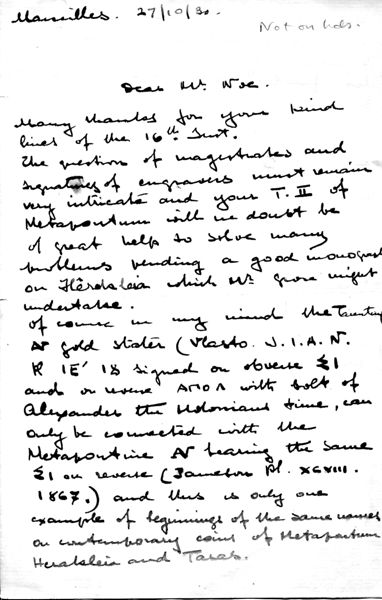 Marseilles. 27/10/30.
Not on hds.
Dear Mr. Noe.
Many thanks for your kind
lines of the 16th Inst.
The question of magistrates and
signatures of engravers must remain
very intricate and your T. II of
Metapontum will no doubt be
of great help to solve many
problems pending a good monograph
on Hêrakleia which Mr. Grose might
undertake.
Of course in my mind the Tarentine
AV gold stater (Vlasto. J.I.A.N.
IE' 18 signed on obverse ΣΙ
and on reverse ΑΠΟΛ with bolt of
Alexander the Molossians time, can
only be connected with the
Metapontine AV bearing the same
ΣΙ on reverse (Jameson Pl. XCVIII.
1867.) and this is only one
example of beginnings of the same names
on contemporary coins of Metapontum
Herakleia and Taras.